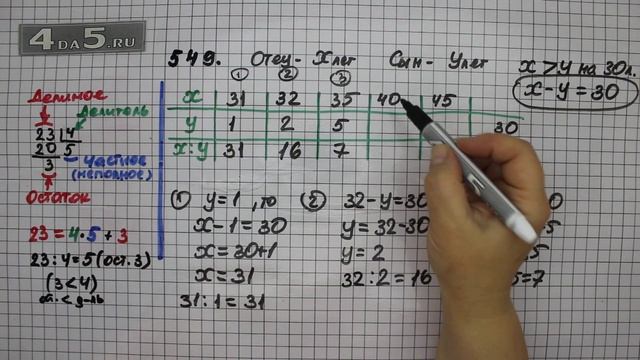 4DA5.RU
549. Отец - X лет Сын - У лет
x > y на 30л.
x - y = 30
① ② ③
x 31 32 35 40 45
y 1 2 5 30
x:y 31 16 7
Делимое
Делитель
23 4
20 5
3
частное
(неполное)
Остаток
23 = 4·5 + 3
23 : 4 = 5 (ост. 3)
(3 < 4)
① y = 1, то
x - 1 = 30
x = 30+1
x = 31
31 : 1 = 31
② 32 - y = 30
y = 32 - 30
y = 2
32 : 2 = 16